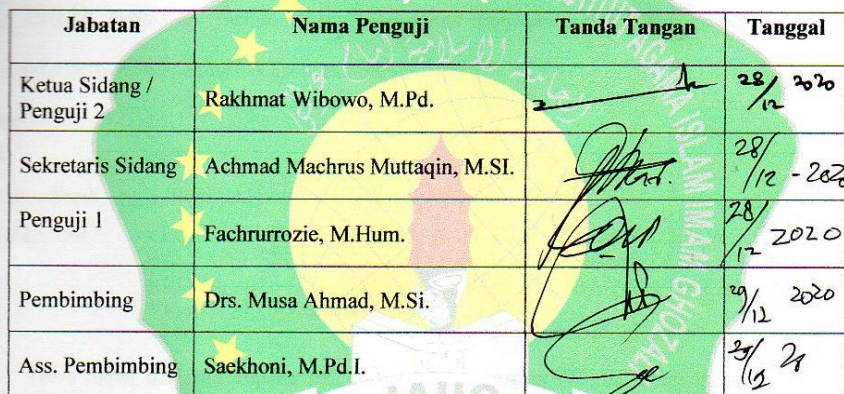 Jabatan Nama Penguji Tanda Tangan Tanggal
Ketua Sidang /
Penguji 2 Rakhmat Wibowo, M.Pd. 28/12 2020
Sekretaris Sidang Achmad Machrus Muttaqin, M.SI. 28/12 - 2020
Penguji 1 Fachrurrozie, M.Hum. 28/12 2020
Pembimbing Drs. Musa Ahmad, M.Si. 29/12 2020
Ass. Pembimbing Saekhoni, M.Pd.I.
AGAMA ISLAM IMAM GHOZALI